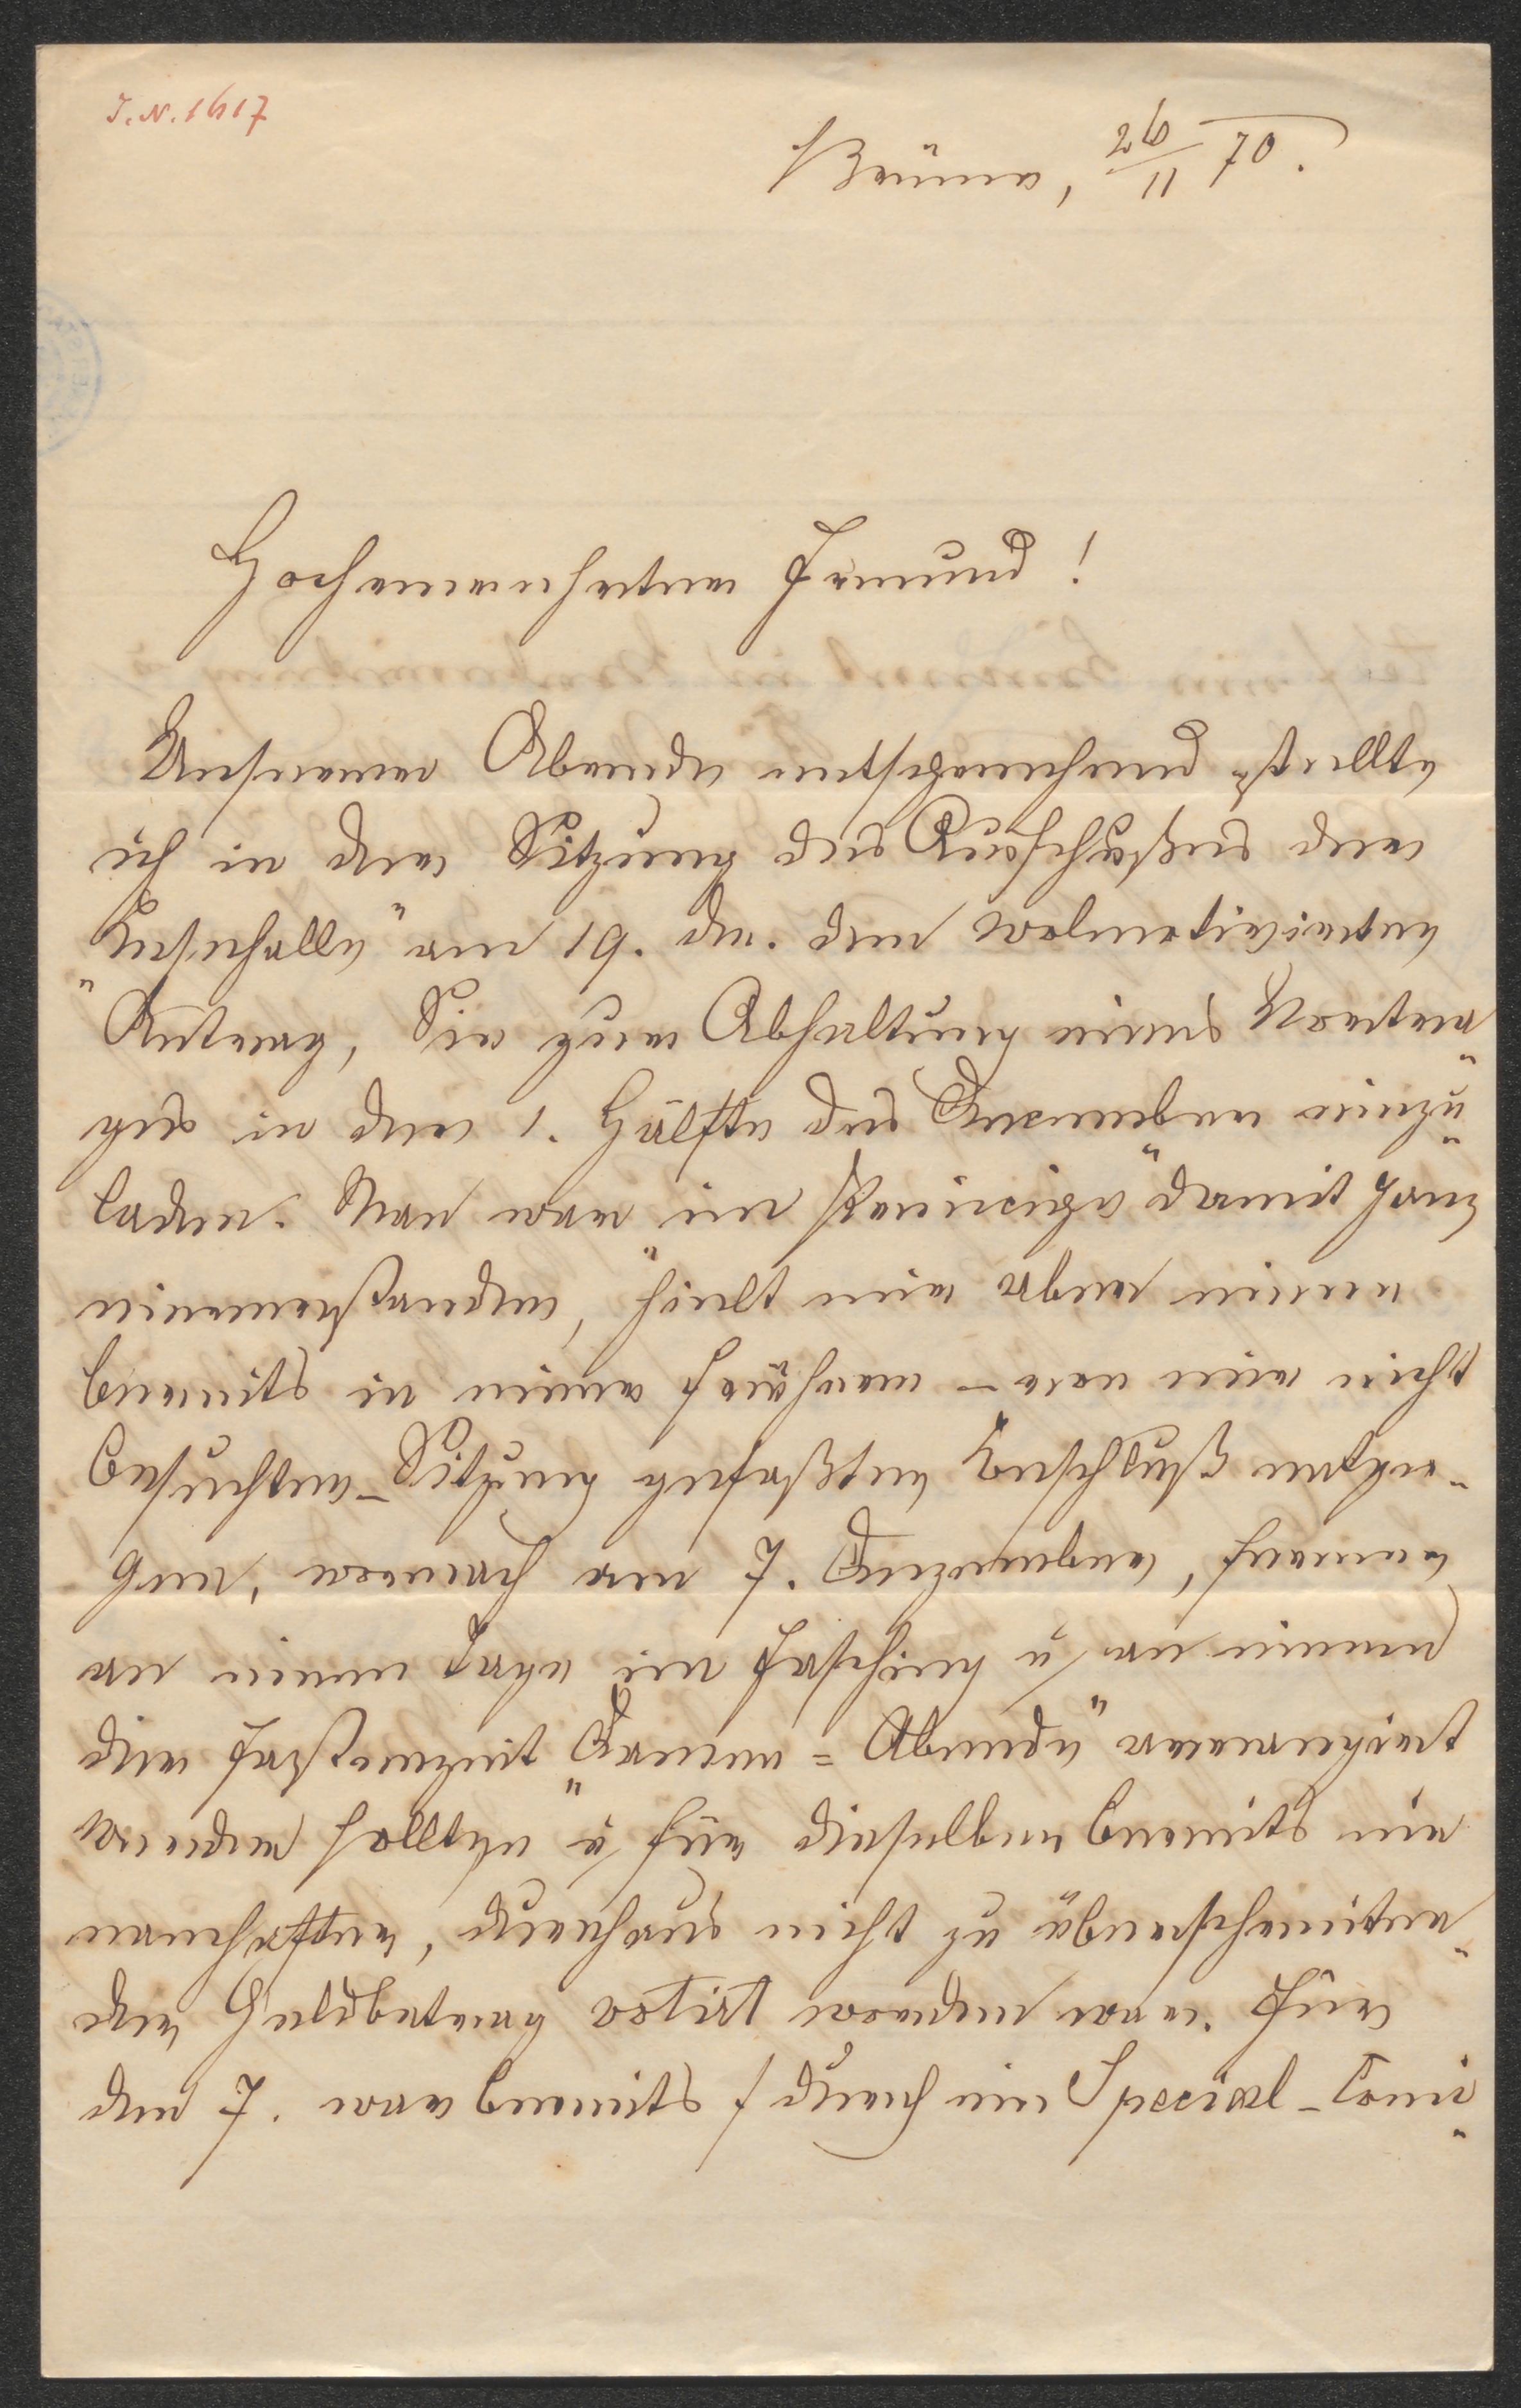 J. N. 1617
Brünn, 29/11 70.
Hochverehrter Freund!
Unserer Abrede entsprechend stellte
ich in der Sitzung des Ausschußes der
„Lesehalle" am 19. d. den wolmotivirten
Antrag, Sie zur Abhaltung eines Vortra„
ges in der 1. Hälfte des Dezember einzu„
laden. Man war „im Principe" damit ganz
einverstanden, hielt mir aber einen
bereits in einer früheren – von mir nicht
besuchten – Sitzung gefaßten Beschluß entge„
gen, wornach am 7. Dezember, ferner
an einem Tage im Fasching u an einem
der Fastenzeit „Damen = Abende" arrangirt
werden sollten u für dieselben bereits ein
namhafter, durchaus nicht zu überschreiten„
der Geldbetrag votirt worden war. Für
den 7. war bereits / durch ein Special-Comi„